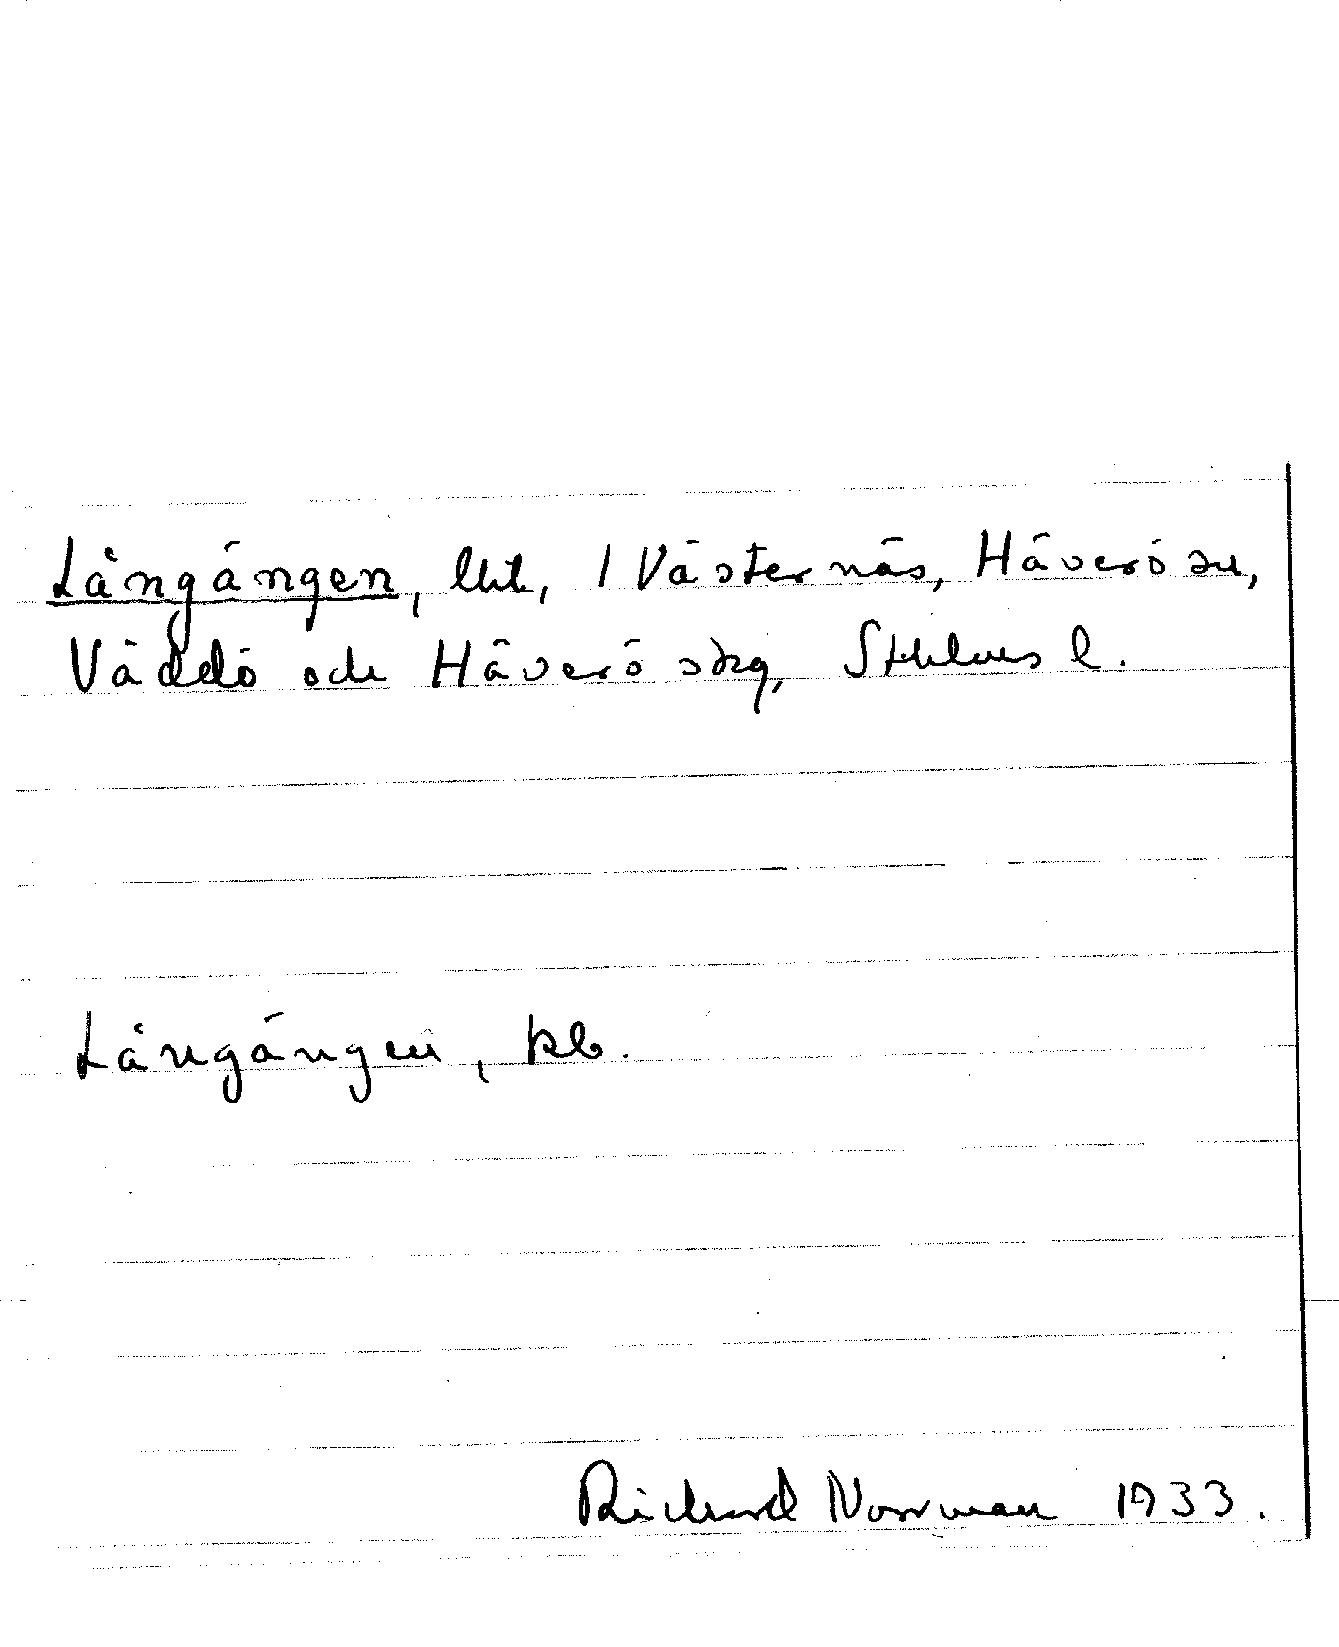 Långängen, lht, 1 Västernäs, Häverö sn,
Väddö och Häverö skg, Sthlms l.
Långängen, kb.
Richard Norrman 1933.